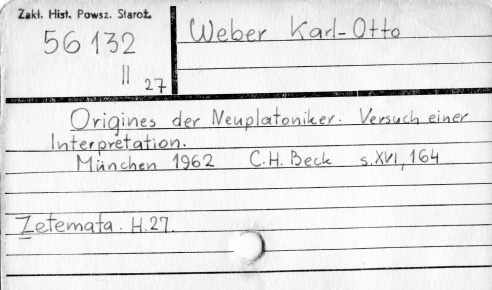 Zakł. Hist. Powsz. Staroż.
56132
II 27
Weber Karl-Otto
Origines der Neuplatoniker. Versuch einer
Interpretation.
München 1962 C.H. Beck s. XVI, 164
Zetemata. H. 27.